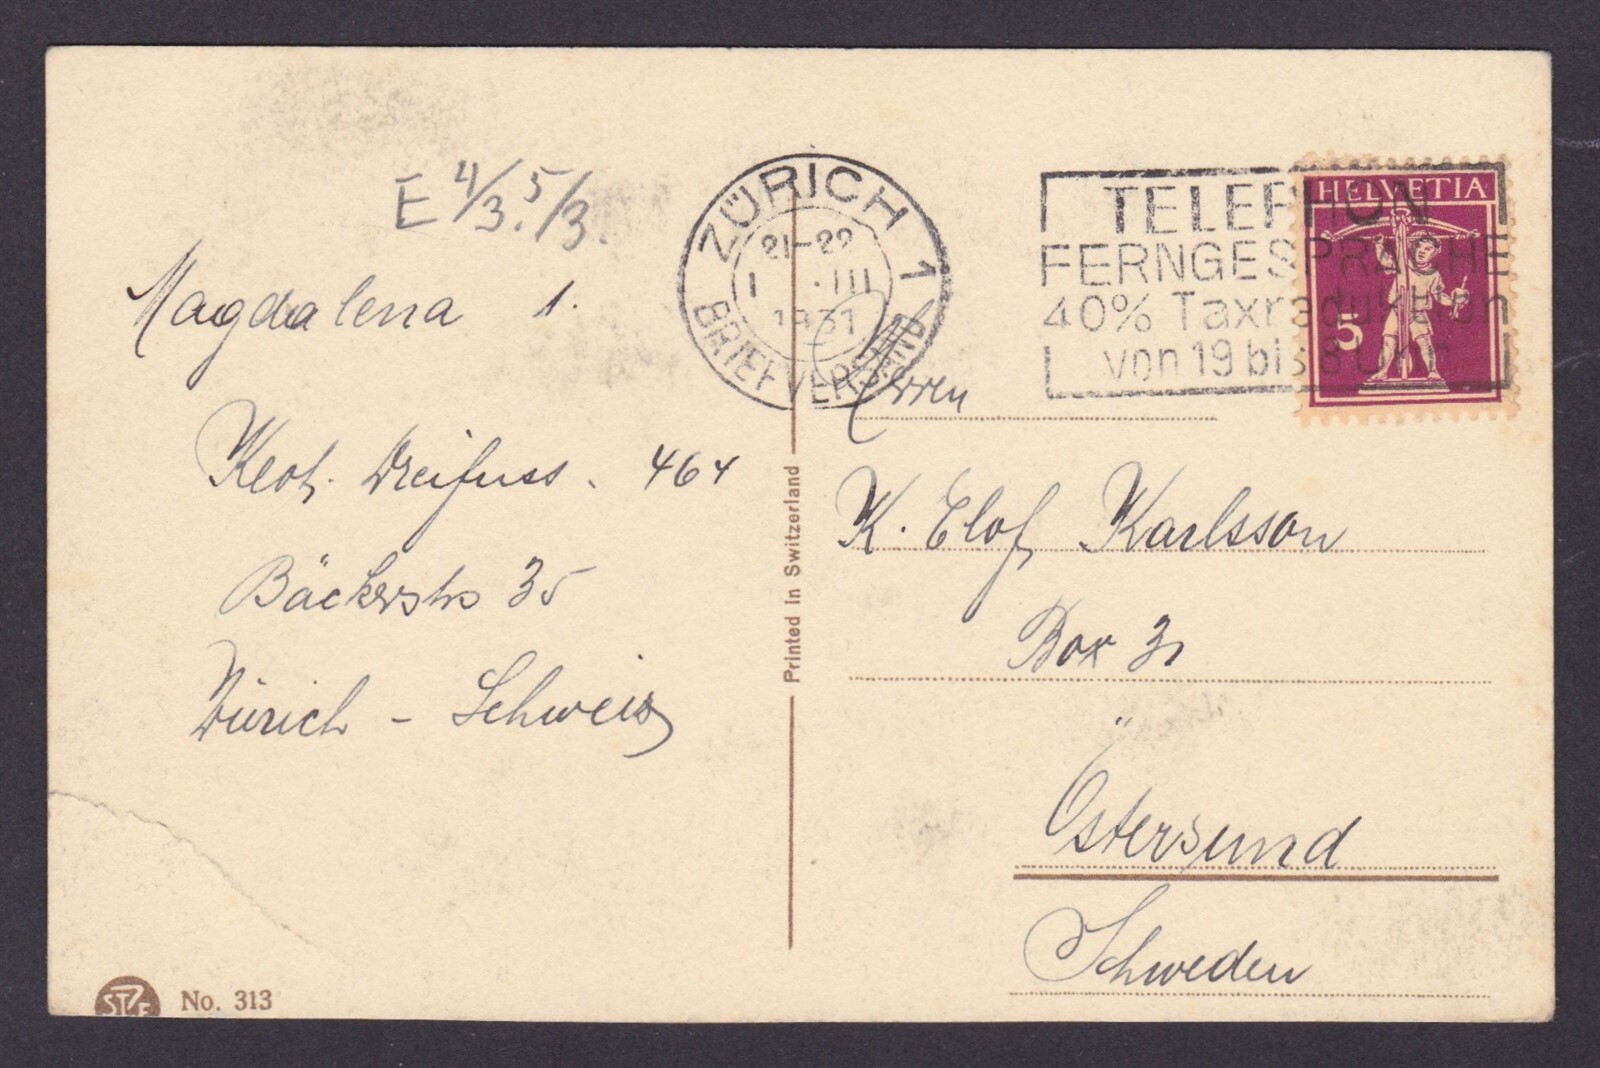 E 4/3. 5/3.
Magdalena 1.
Dreifuss. 464
Bäckerstr 35
Zürich - Schweiz
No. 313
Printed in Switzerland
ZÜRICH 1
21-22
1 . III
1931
BRIEFVERSAND
TELEPHON
FERNGESPRÄCHE
40% Taxreduktion
von 19 bis 8 Uhr
HELVETIA
5
Herren
K. Elof Karlsson
Box 31
Östersund
Schweden